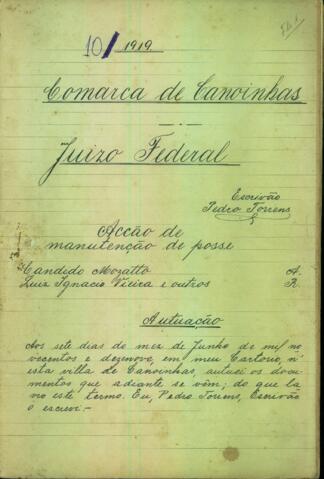 10/1919
Comarca de Canoinhas
Juizo Federal
Escrivão
Pedro Torrens
Acção de
manutenção de posse
Candido Mozatto A.
Luiz Ignacio Vieira e outros R.
Autuação
Aos sete dias do mez de Junho de mil no
vecentos e dezenove, em meu Cartorio, n'
esta villa de Canoinhas, autuei os docu-
mentos que adiante se vêm; do que la
vro este termo. Eu, Pedro Torrens, Escrivão
o escrevi.-